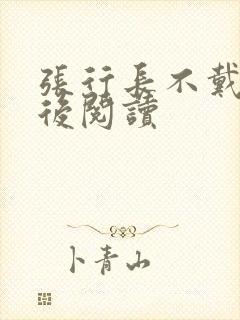 張行長不戴
後閱讀
卜青山